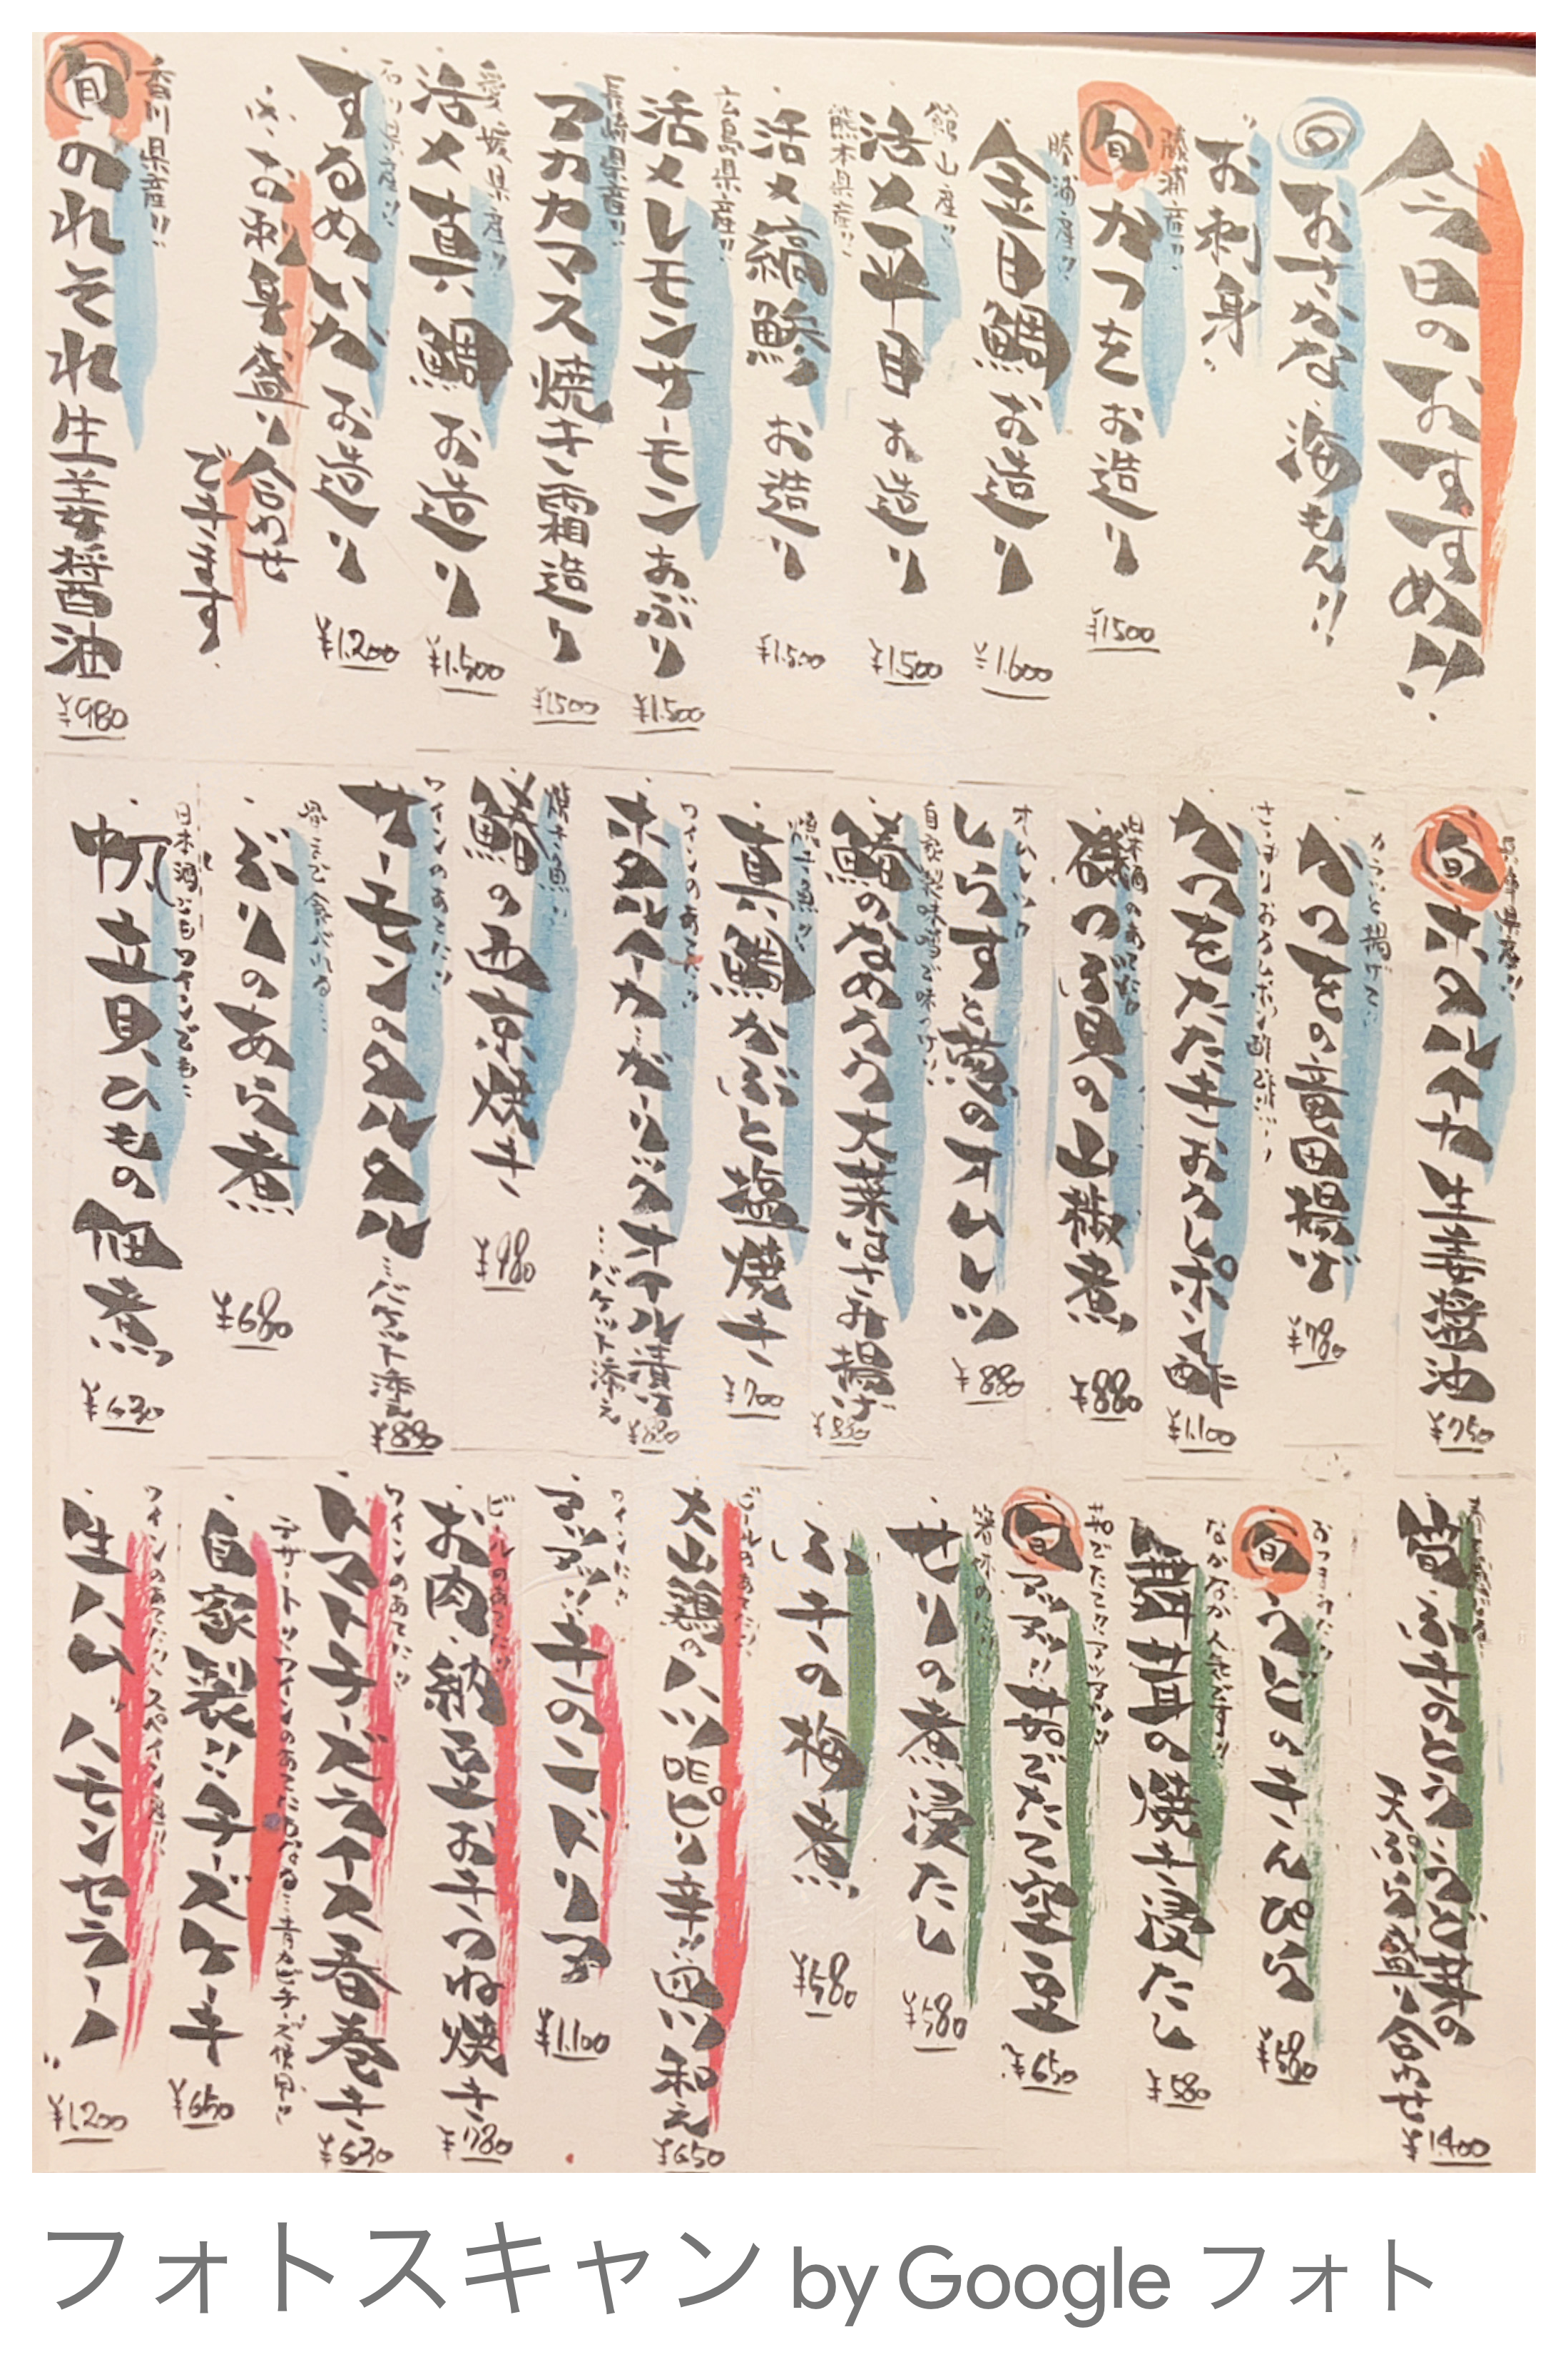 今日のおすすめ!!
◎おさかな、海もん!!
お刺身
勝浦産!!
旬 かつをお造り ¥1500
勝浦産!!
金目鯛お造り ¥1.600
館山産!!
活〆平目お造り ¥1500
熊本県産!!
活〆縞鯵お造り ¥1.500
広島県産!!
活〆レモンサーモンあぶり ¥1.500
長崎県産!!
アカカマス焼き霜造り ¥1500
愛媛県産!!
活〆真鯛お造り ¥1.500
石川県産!!
するめいかお造り ¥1.200
お刺身盛り合わせ
できます
香川県産!!
旬 のれそれ生姜醤油 ¥980
旬 ホタルイカ生姜醤油 ¥750
カラッと揚げて!!
かつをの竜田揚げ ¥780
さっぱりおろしポン酢
かつをたたきおろしポン酢 ¥1.100
日本酒のあてに!!
磯つぶ貝の山椒煮 ¥880
オムレツ!!
しらすと葱のオムレツ ¥880
自家製味噌で味つけ!!
鯵のなめろう大葉はさみ揚げ
焼き魚!!
真鯛かぶと塩焼き ¥700
ワインのあてに!!
ホタルイカガーリックオイル漬け
…バケット添え
焼き魚!!
鰆の西京焼き ¥980
ワインのあてに!!
サーモンのタルタル…バケット添え ¥880
骨まで食べれる
ぶりのあら煮 ¥680
日本酒にもワインでも!!
帆立貝ひもの佃煮 ¥630
天ぷら盛り合わせ ¥1.400
おつまみに!!
旬 うどのきんぴら ¥580
なかなか人気です!!
舞茸の焼き浸たし ¥580
茹でたて!!アツアツ!!
旬 アツアツ!!茹でたて空豆 ¥650
せりの煮浸たし ¥580
ふきの梅煮 ¥580
ビールのあてに!!
大山鶏のハツDEピリ辛!!塩和え ¥650
ワインに!!
アツアツ!!きのこドリア ¥1.100
ビールのあてに!!
お肉、納豆お手つね焼き ¥780
ワインのあてに!!
トマトチーズライス春巻き ¥630
デザートに!!ワインのあてにもなる…青カビチーズ使用!!
自家製!!チーズケーキ ¥650
ワインのあてに!!スペイン産!!
生ハム"ハモンセラーノ" ¥1.200
フォトスキャン by Google フォト